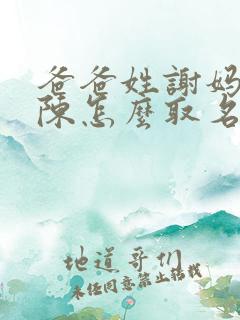 爸爸姓謝妈
陳怎麼取名
地道哥们
未经同意禁止转载